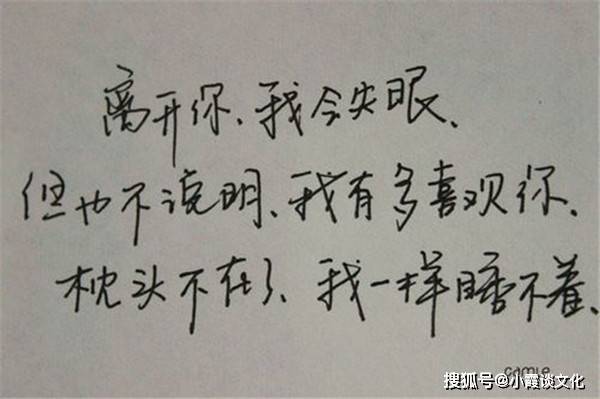 离开你、我会失眠、
但也不说明、我有多喜欢你、
枕头不在了、我一样睡不着、
camie
搜狐号@小霞谈文化